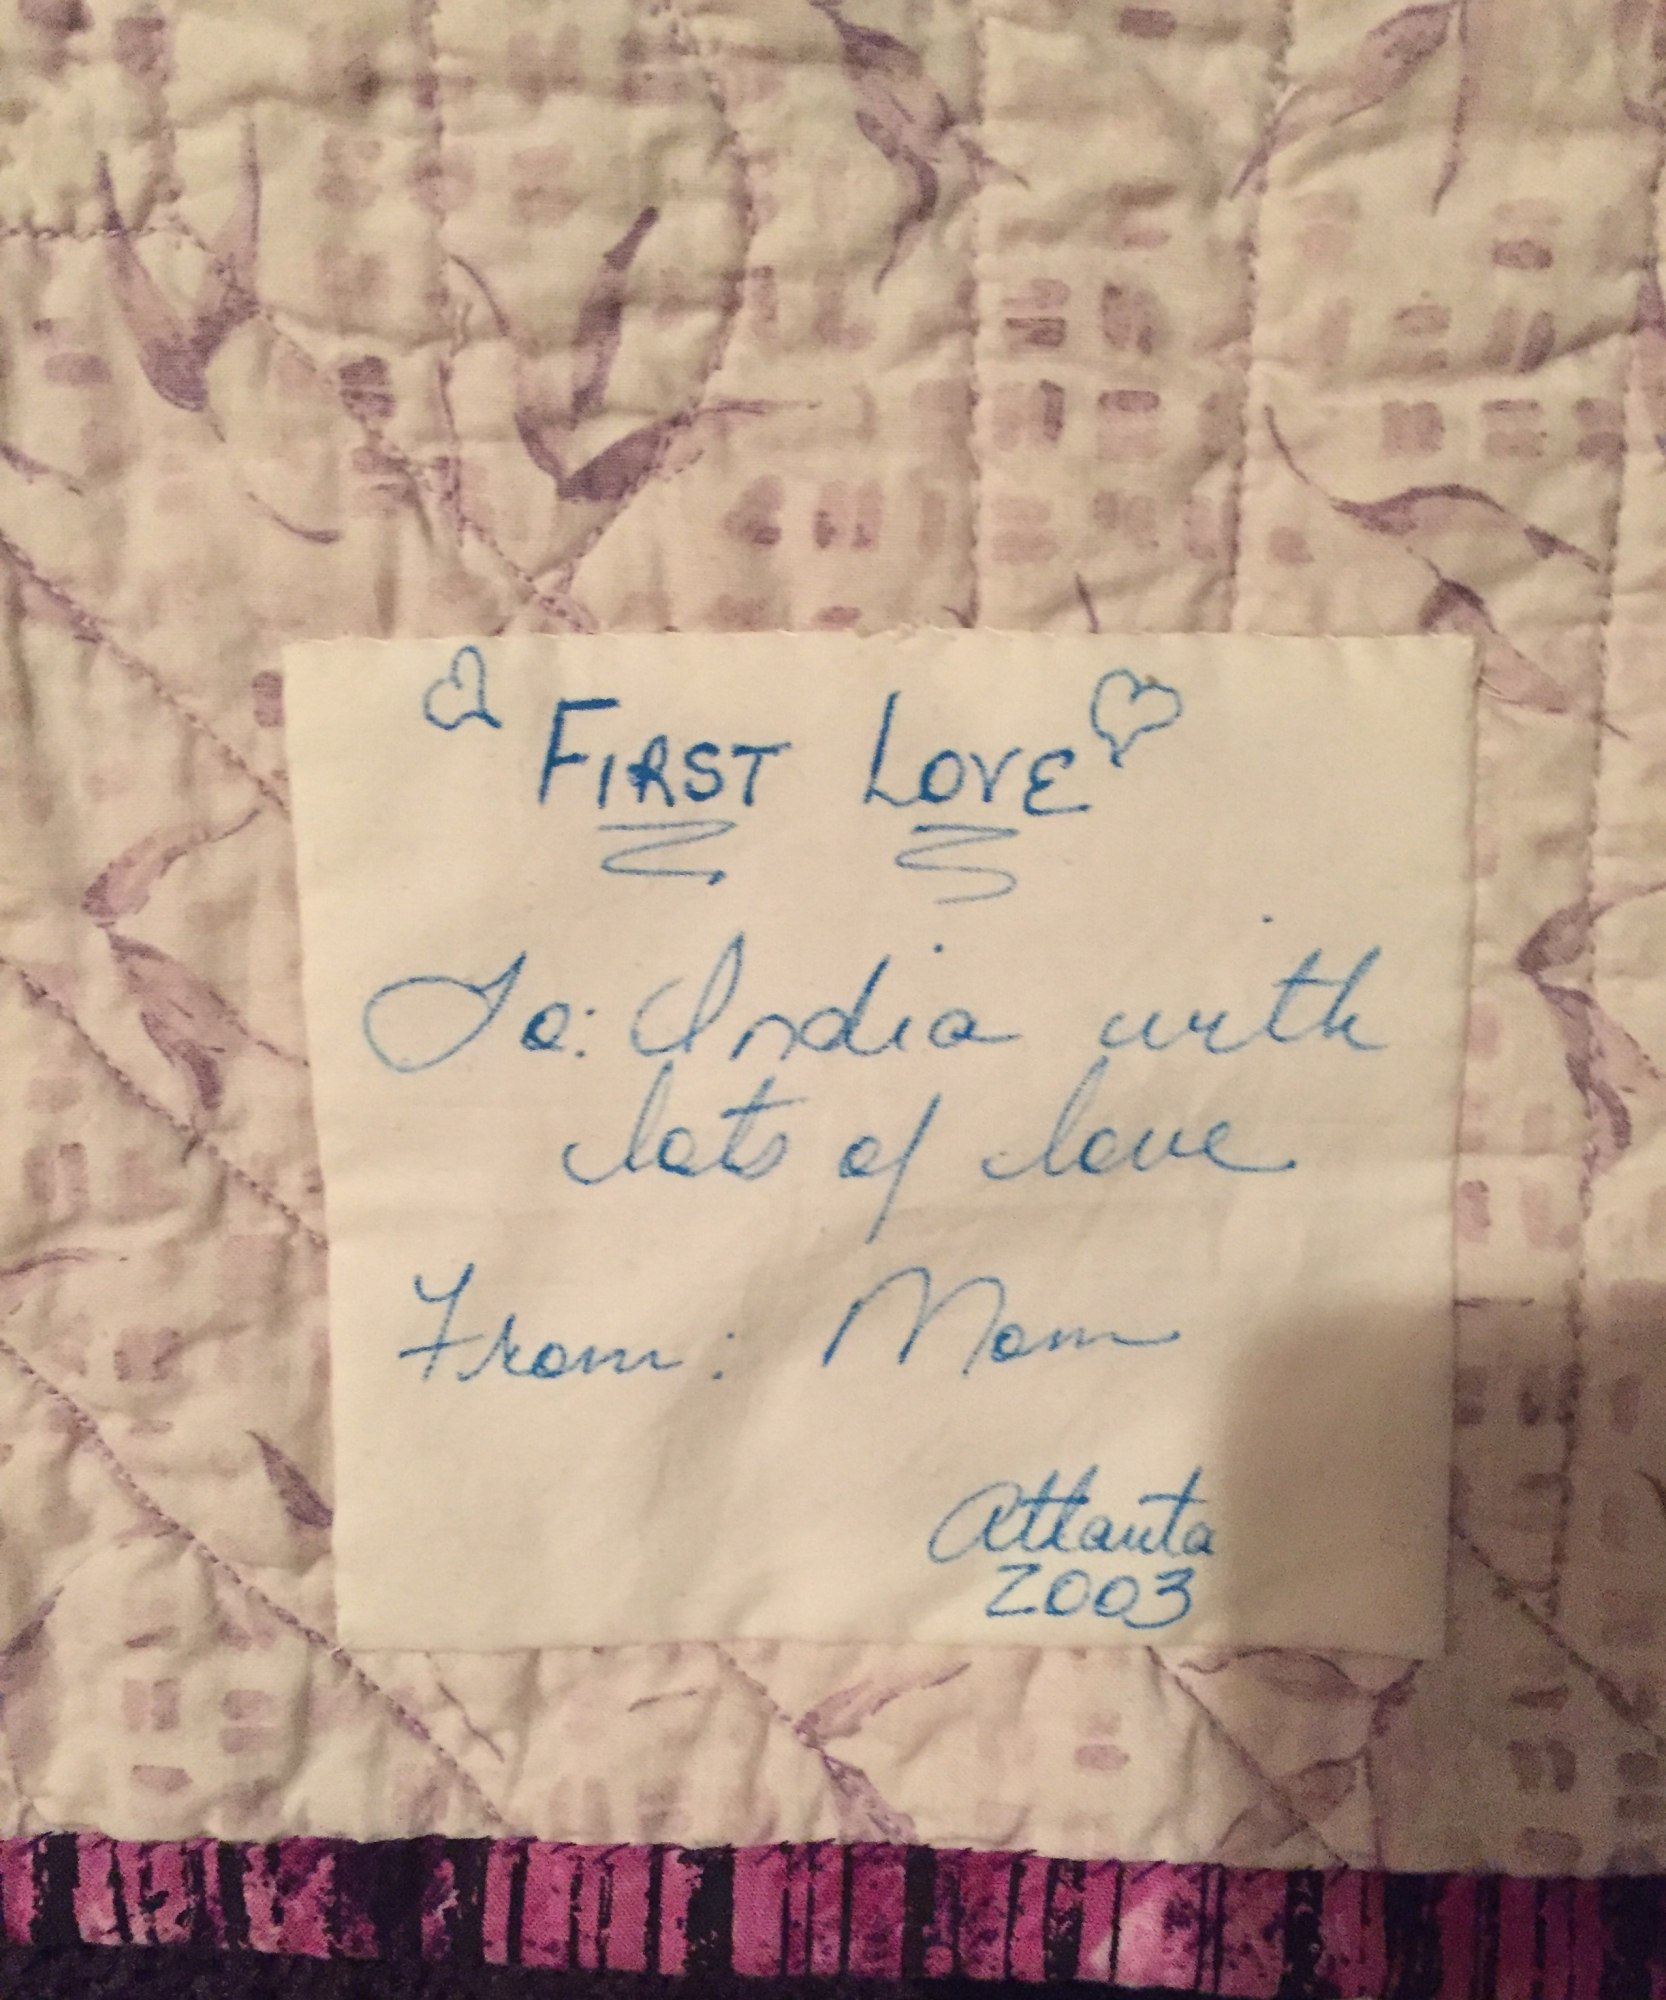 FIRST LOVE
To: India with
lots of love
From: Mom
Atlanta
2003